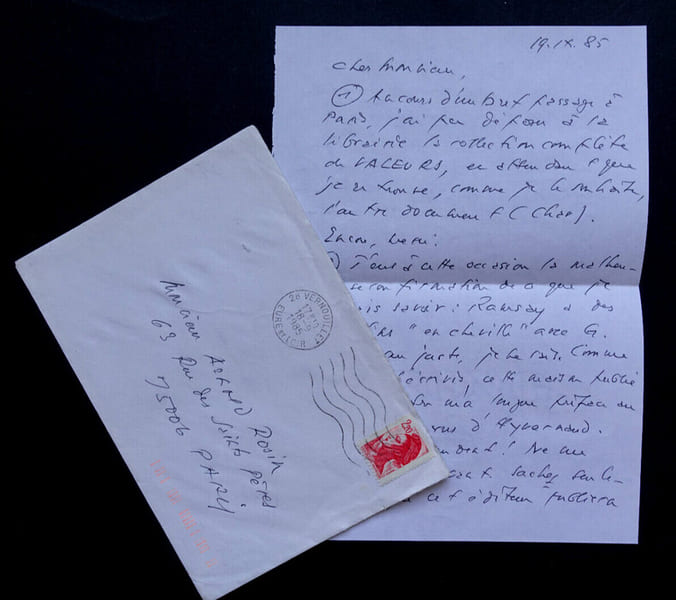 19.IX.85
Cher Monsieur,
① Au cours d'un bref passage à
Paris, j'ai pu déposer à la
librairie la collection complète
de VALEURS, en attendant que
je en trouve, comme je le souhaite,
l'autre document (Char).
Encore, merci.
J'eus à cette occasion la malheu-
confirmation de ce que je
savoir : Ramsay a des
"en cheville" avec G.
au juste, je ne sais. Comme
écrivis, cette maison publie
ma longue préface
d'Hyvernaud.
Ne
sachez
cet éditeur publiera
28 VERNOUILLET
17H15
18-9
1985
EURE ET LOIR
2,20
Monsieur Rosin
63 Rue des Saints Pères
75006 PARIS